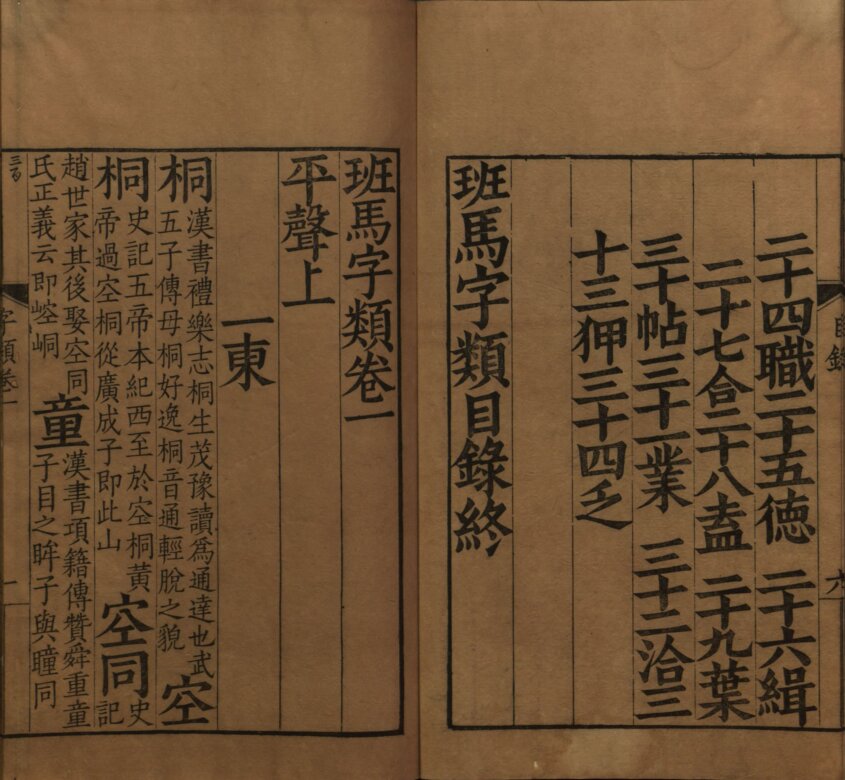 二十四職二十五德 二十六緝
二十七合二十八盍 二十九葉
三十帖三十一業 三十二洽三
十三狎三十四乏
班馬字類目錄終
目錄
六
班馬字類卷一
平聲上
一東
桐漢書禮樂志桐生茂豫讀爲通達也武
五子傳毋桐好逸桐音通輕脫之貌空
桐史記五帝本紀西至於空桐黃
帝過空桐從廣成子即此山空同史記
趙世家其後娶空同
氏正義云即崆峒
童漢書項籍傳贊舜重童
子目之眸子與瞳同
字類卷一
一